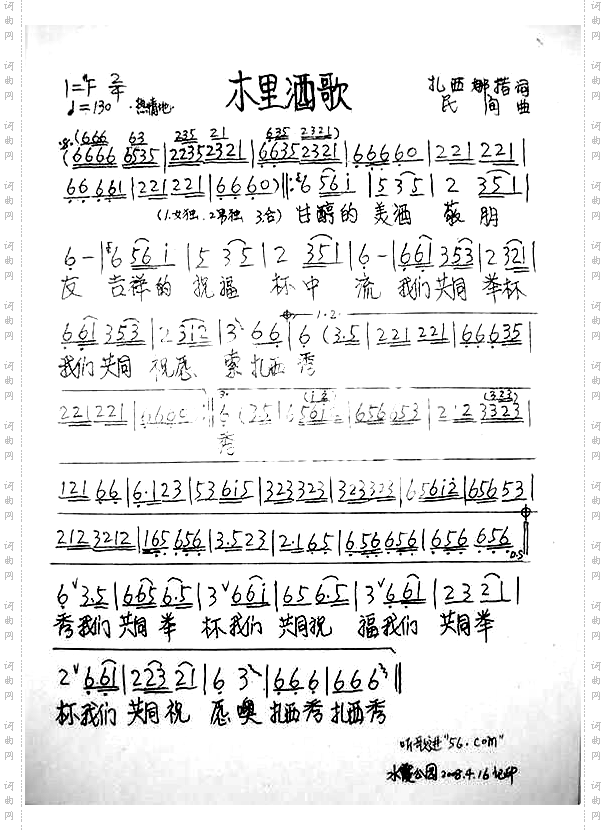 木里酒歌
扎西娜措 词
民间 曲
1=♭B 2/4
♩=130 热情地
(666 63 235 21 635 2321)
(6666 6535|2235 2321|6635 2321|66660|221 221|
66 661|221 221|6660)‖:6 56i|5 35|2 351|
(1.女独.2男独 3.合) 甘醇的 美酒 敬朋
6-|6 56i|5 35|2 351|6-|661 353|2 321|
友 吉祥的 祝福 杯中 流 我们共同 举杯
661 353|2 312|3 66|6 (3.5|221 221|66635|
我们共同 祝愿 索扎西 秀
1.2.
221 221|
3.
秀
(323)
656653|2.2 3323|
121 66|6.123|53 6i5|323323|323323|656i2|65653|
212 3212|165 656|3.523|2.165|656656|656 656
D.S
6 3.5|665 6.5|3 661|65 6.5|3 661|23 21|
秀我们 共同举 杯我们 共同祝 福我们 共同举
2 661|223 21|6 3|666|666‖
杯我们 共同祝 愿噢 扎西秀扎西秀
听歌进"56.com"
水霞公园2008.4.16记印
词曲网